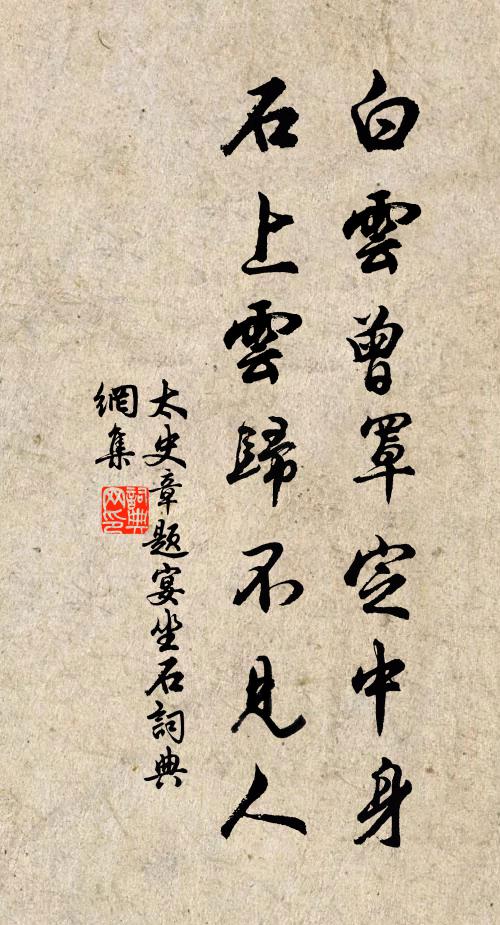 白雲曾罩定中身
石上雲歸不見人
太史章題宴坐石詞典
網集
詞典
网印